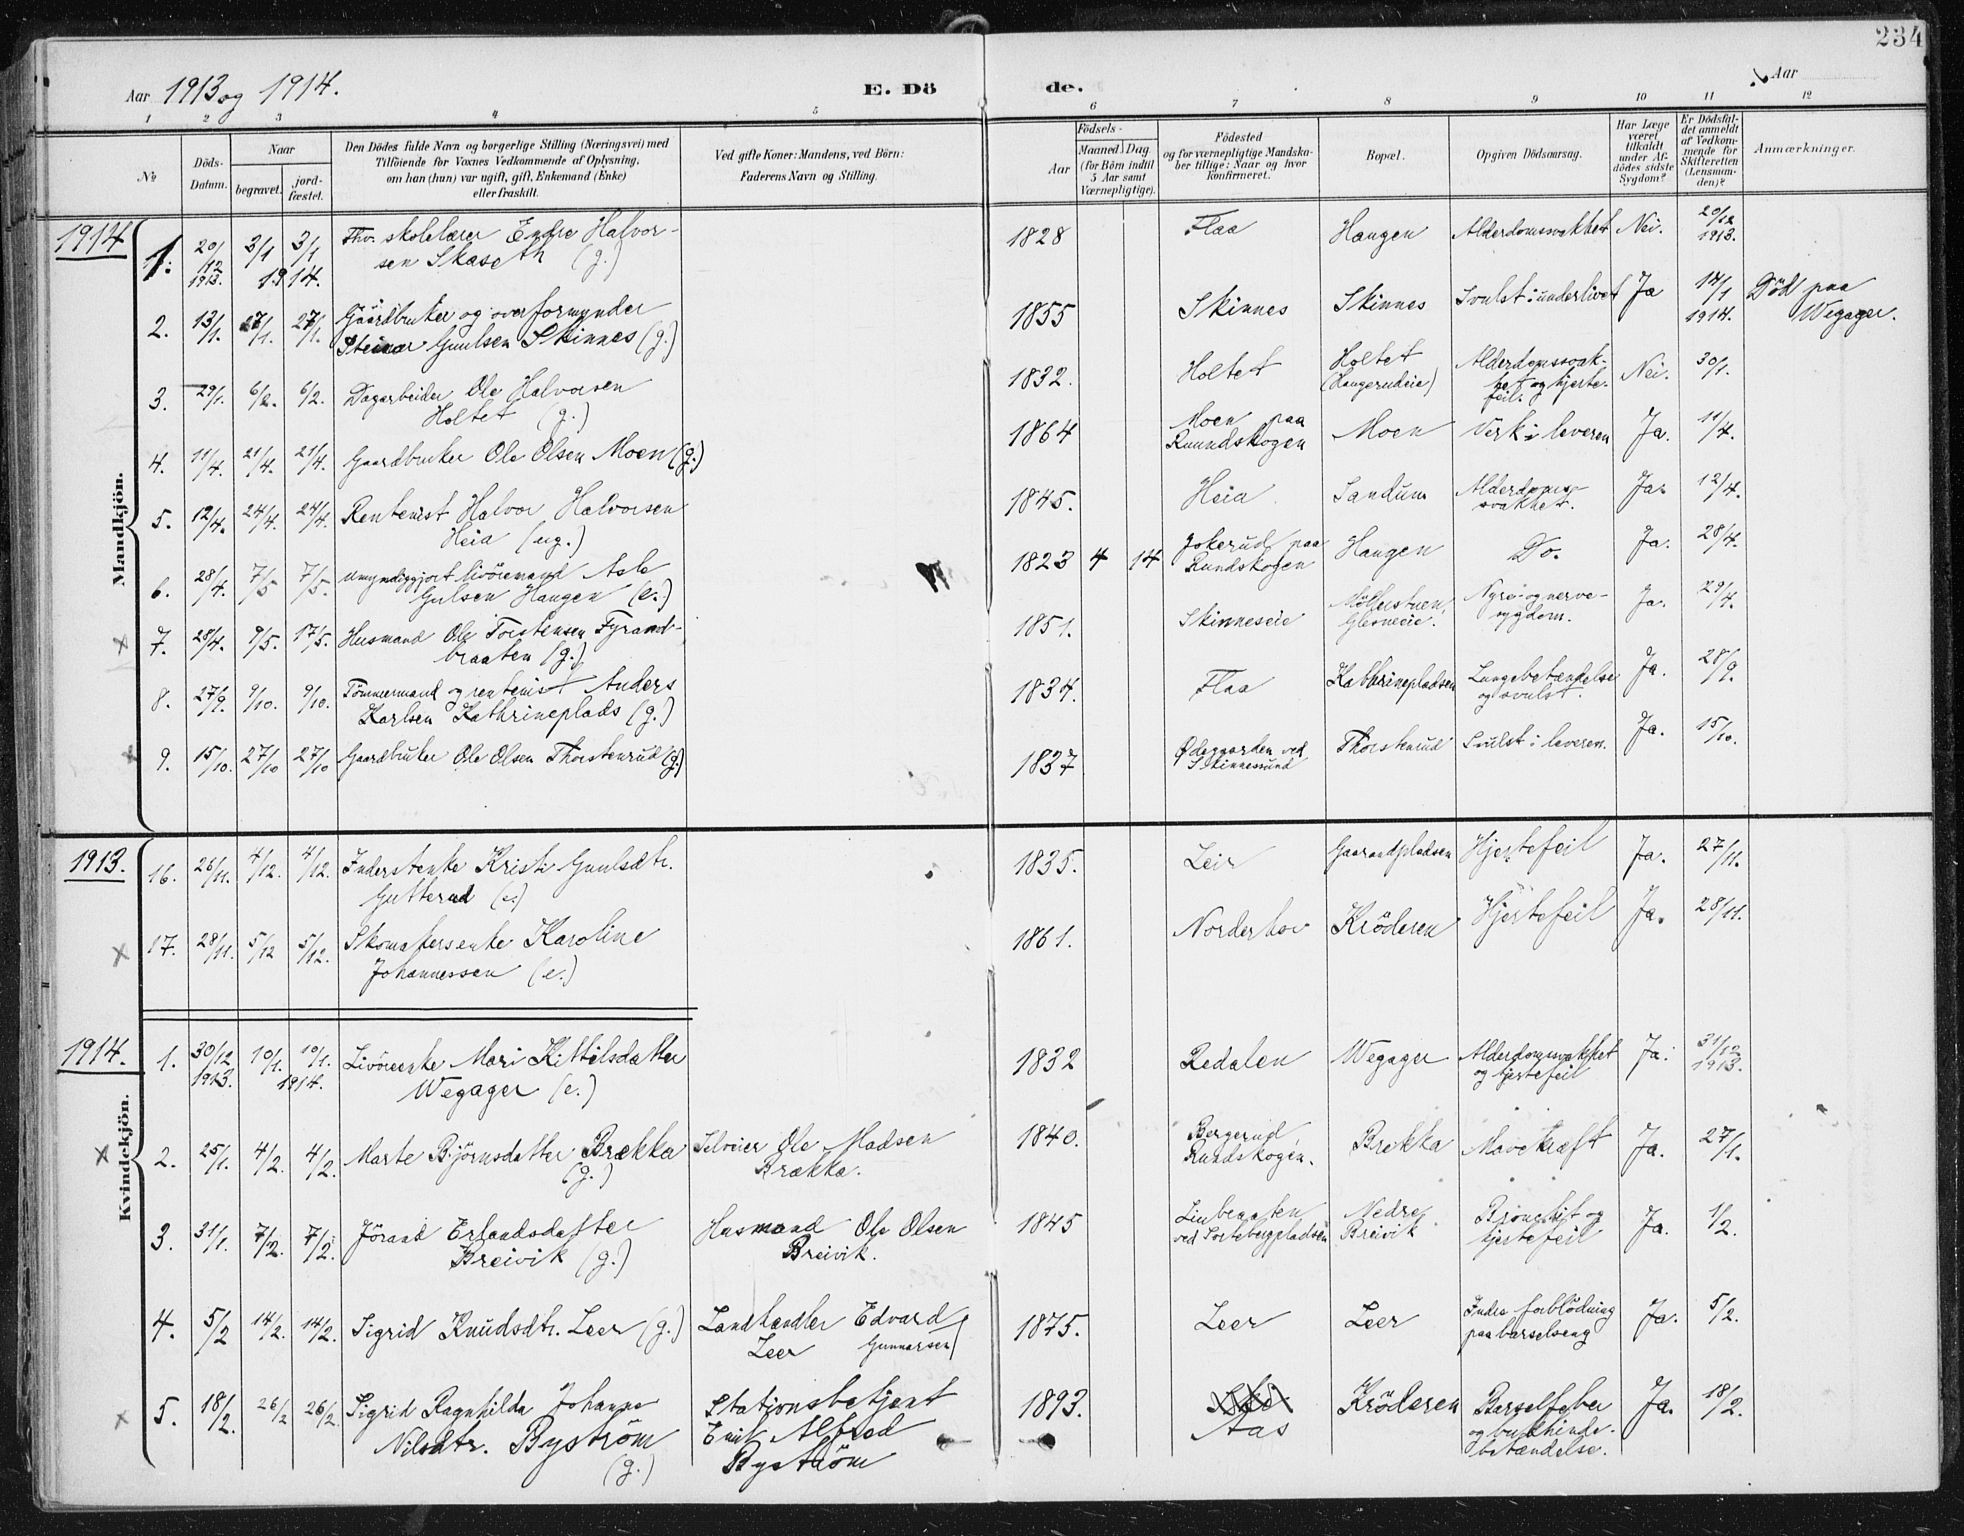 234
Aar 1913 og 1914.
E. Dö
de.
Aar
1 2 3 4 5 6 7 8 9 10 11 12
No
Döds-
Datum.
Naar
begravet.
jord-
fæstet.
Den Dödes fulde Navn og borgerlige Stilling (Næringsvei) med
Tilföiende for Voxnes Vedkommende af Oplysning,
om han (hun) var ugift, gift, Enkemand (Enke)
eller fraskilt.
Ved gifte Koner: Mandens, ved Börn:
Faderens Navn og Stilling.
Födsels-
Aar
Maaned Dag
(for Börn indtil
5 Aar samt
Værnepligtige).
Födested
og for værnepligtige Mandska-
ber tillige: Naar og hvor
konfirmeret.
Bopæl.
Opgiven Dödsaarsag.
Har Læge
været
tilkaldt
under Af-
dödes sidste
Sygdom?
Er Dödsfal-
det anmeldt
af Vedkom-
mende for
Skifteretten
(Lensman-
den)?
Anmærkninger.
Mandkjön.
1914
1. 20/12 1913. 3/1 3/1 1914. Fhv. skolelærer Endre Halvor-
sen Skaseth (g.)
1828 Flaa Haugen Alderdomssvakhet Nei. 20/12 1913.
2. 13/1. 27/1. 27/1. Gaardbruker og overformynder
Steinar Guulsen Skinnes (g.)
1855 Skinnes Skinnes Svulst i underlivet Ja 14/1 1914. Död paa
Wegager.
3. 29/1. 6/2. 6/2. Dagarbeider Ole Halvorsen
Holtet (g.)
1832. Holtet Holtet
(Haugerudeie)
Alderdomssvak-
het og hjerte-
feil.
Nei. 30/1.
4. 11/4. 21/4. 21/4. Gaardbruker Ole Olsen Moen (g.)
1864 Moen paa
Ruundskogen
Moen Verk i leveren Ja. 11/4.
5. 12/4. 24/4. 24/4. Rentenist Halvor Halvorsen
Heia (ug.)
1845. Heia Sandum Alderdoms-
svakhet.
Ja. 12/4.
6. 28/4. 7/5 7/5. umyndiggjort livöremand Asle
Gulsen Haugen (e.)
1823 4 14 Jokerud paa
Rundskogen
Haugen Do. Ja. 28/4.
7. 28/4. 9/5. 17/5. Husmand Ole Torstensen Fyrand-
braaten (g.)
1851. Skinneseie Möllerstuen,
Glesneeie.
Nyre- og nerve-
sygdom.
Ja. 29/4.
8. 27/9. 9/10. 9/10. Tömmermand og rentenist Anders
Karlsen Kathrineplads (g.)
1834. Flaa Kathrinepladsen Lungebetændelse
og svulst.
Ja. 28/9.
9. 15/10. 27/10 27/10 Gaardbruker Ole Olsen Thorstenrud (g.)
1837 Ødegaarden ved
Skinnessund
Thorstenrud Svulst i leveren. Ja. 15/10.
1913.
16. 26/11. 4/12. 4/12. Inderstenke Kristi Guulsdtr.
Gutterud (e.)
1835. Leir Gaarandpladsen Hjertefeil Ja. 27/11.
17. 28/11. 5/12 5/12. Skomakersenke Karoline
Johannessen (e.)
1861. Norderhov Kröderen Hjertefeil Ja. 28/11.
Kvindekjön.
1914.
1. 30/12 1913. 10/1. 10/1. 1914. Livöreenke Mari Kittilsdatter
Wegager (e.)
1832 Redalen Wegager Alderdomssvakhet
og hjertefeil
Ja. 31/12 1913.
2. 25/1. 4/2. 4/2. Marte Björnsdatter Brækka
(g.)
Selveier Ole Madsen
Brække.
1840. Bergerud,
Rundskogen.
Brekka Mavekræft Ja. 27/1.
3. 31/1. 7/2. 7/2. Jörand Erlandsdatter
Breivik (g.)
Husmand Ole Olsen
Breivik.
1845 Liubraaten
ved Sortebergpladsen
Nedre
Breivik
Bronchit og
hjertefeil
Ja. 1/2.
4. 5/2 14/2. 14/2. Sigrid Knudsdtr. Leer (g.)
Landhandler Edvard
Leer Gunnarsen
1875. Leer Leer Indre forblödning
paa barselseng
Ja. 5/2.
5. 18/2. 26/2 26/2. Sigrid Ragnhilda Johanne
Nilsdtr. Byström
(g.)
Stationsbetjent
Emil Alfred
Byström
1893. Aas Kröderen Barselfeber
og bukhinde-
betændelse.
Ja. 18/2.